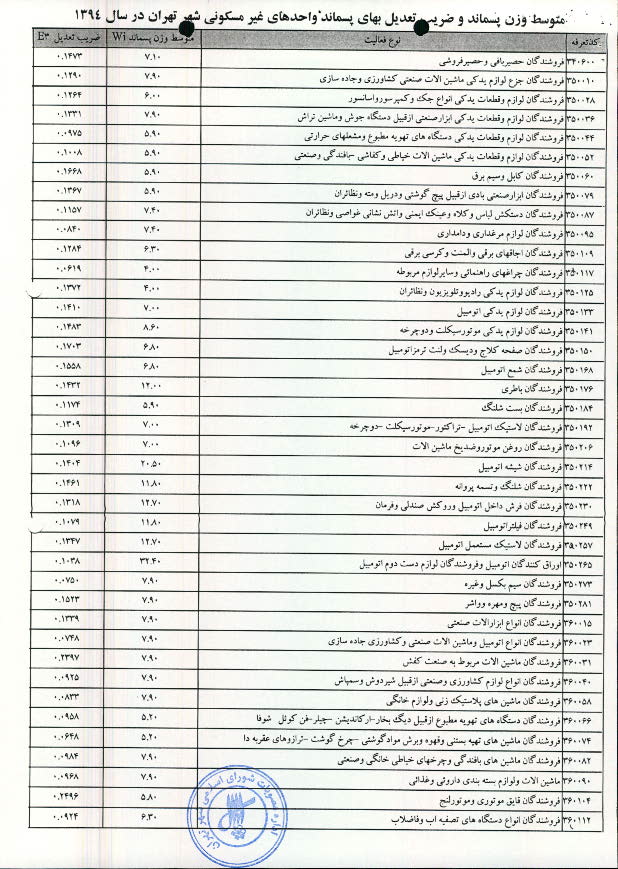 متوسط وزن پسماند و ضریب تعدیل بهای پسماند واحدهای غیر مسکونی شهر تهران در سال ۱۳۹۴
کدتعرفه نوع فعالیت متوسط وزن پسماند Wi ضریب تعدیل E۳
۳۴۰۶۰۰ فروشندگان حصیربافی وحصیرفروشی ۷.۱۰ ۰.۱۴۷۳
۳۵۰۰۱۰ فروشندگان جزع لوازم یدکی ماشین الات صنعتی کشاورزی وجاده سازی ۷.۹۰ ۰.۱۲۹۰
۳۵۰۰۲۸ فروشندگان لوازم وقطعات یدکی انواع جک وکمپرسورواسانسور ۶.۰۰ ۰.۱۲۶۴
۳۵۰۰۳۶ فروشندگان لوازم وقطعات یدکی ابزارصنعتی ازقبیل دستگاه جوش وماشین تراش ۷.۹۰ ۰.۱۳۳۱
۳۵۰۰۴۴ فروشندگان لوازم وقطعات یدکی دستگاه های تهویه مطبوع ومشعلهای حرارتی ۵.۹۰ ۰.۰۹۷۵
۳۵۰۰۵۲ فروشندگان لوازم وقطعات یدکی ماشین الات خیاطی وکفاشی -بافندگی وصنعتی ۵.۹۰ ۰.۱۰۰۸
۳۵۰۰۶۰ فروشندگان کابل وسیم برق ۵.۹۰ ۰.۱۶۶۸
۳۵۰۰۷۹ فروشندگان ابزارصنعتی بادی ازقبیل پیچ گوشتی ودریل ومته ونظائران ۵.۹۰ ۰.۱۳۶۷
۳۵۰۰۸۷ فروشندگان دستکش لباس وکلاه وعینک ایمنی واتش نشانی غواصی ونظائران ۷.۴۰ ۰.۱۱۵۷
۳۵۰۰۹۵ فروشندگان لوازم مرغداری ودامداری ۷.۴۰ ۰.۰۸۴۰
۳۵۰۱۰۹ فروشندگان اجاقهای برقی والمنت وکرسی برقی ۶.۳۰ ۰.۱۲۸۴
۳۵۰۱۱۷ فروشندگان چراغهای راهنمائی وسایرلوازم مربوطه ۴.۰۰ ۰.۰۶۱۹
۳۵۰۱۲۵ فروشندگان لوازم یدکی رادیووتلویزیون ونظائران ۴.۰۰ ۰.۱۳۷۲
۳۵۰۱۳۳ فروشندگان لوازم یدکی اتومبیل ۷.۰۰ ۰.۱۴۱۰
۳۵۰۱۴۱ فروشندگان لوازم یدکی موتورسیکلت ودوچرخه ۸.۶۰ ۰.۱۴۸۳
۳۵۰۱۵۰ فروشندگان صفحه کلاج ودیسک ولنت ترمزاتومبیل ۶.۸۰ ۰.۱۷۰۳
۳۵۰۱۶۸ فروشندگان شمع اتومبیل ۶.۸۰ ۰.۱۵۵۸
۳۵۰۱۷۶ فروشندگان باطری ۱۲.۰۰ ۰.۱۴۳۲
۳۵۰۱۸۴ فروشندگان بست شلنگ ۵.۹۰ ۰.۱۱۷۴
۳۵۰۱۹۲ فروشندگان لاستیک اتومبیل -تراکتور-موتورسیکلت -دوچرخه ۷.۰۰ ۰.۱۳۰۹
۳۵۰۲۰۶ فروشندگان روغن موتوروضدیخ ماشین الات ۷.۰۰ ۰.۱۰۹۶
۳۵۰۲۱۴ فروشندگان شیشه اتومبیل ۲۰.۵۰ ۰.۱۴۰۴
۳۵۰۲۲۲ فروشندگان شلنگ وتسمه پروانه ۱۱.۸۰ ۰.۱۴۶۱
۳۵۰۲۳۰ فروشندگان فرش داخل اتومبیل وروکش صندلی وفرمان ۱۲.۷۰ ۰.۱۳۱۸
۳۵۰۲۴۹ فروشندگان فیلتراتومبیل ۱۱.۸۰ ۰.۱۰۷۹
۳۵۰۲۵۷ فروشندگان لاستیک مستعمل اتومبیل ۱۲.۷۰ ۰.۱۳۴۷
۳۵۰۲۶۵ اوراق کنندگان اتومبیل وفروشندگان لوازم دست دوم اتومبیل ۳۲.۴۰ ۰.۱۰۳۸
۳۵۰۲۷۳ فروشندگان سیم بکسل وغیره ۷.۹۰ ۰.۰۷۵۰
۳۵۰۲۸۱ فروشندگان پیچ ومهره وواشر ۷.۹۰ ۰.۱۵۲۳
۳۶۰۰۱۵ فروشندگان انواع ابزارالات صنعتی ۷.۹۰ ۰.۱۳۳۹
۳۶۰۰۲۳ فروشندگان انواع اتومبیل وماشین الات صنعتی وکشاورزی جاده سازی ۷.۹۰ ۰.۰۷۴۸
۳۶۰۰۳۱ فروشندگان ماشین الات مربوط به صنعت کفش ۷.۹۰ ۰.۲۳۹۷
۳۶۰۰۴۰ فروشندگان انواع لوازم کشاورزی وصنعتی ازقبیل شیردوش وسمپاش ۷.۹۰ ۰.۰۹۲۵
۳۶۰۰۵۸ فروشندگان ماشین های پلاستیک زنی ولوازم خانگی ۷.۹۰ ۰.۰۸۳۳
۳۶۰۰۶۶ فروشندگان دستگاه های تهویه مطبوع ازقبیل دیگ بخار-ارکاندیشن -چیلر-فن کوئل شوفا ۵.۲۰ ۰.۰۹۵۸
۳۶۰۰۷۴ فروشندگان ماشین های تهیه بستنی وقهوه وبرش موادگوشتی -چرخ گوشت -ترازوهای عقربه دا ۵.۲۰ ۰.۰۶۴۸
۳۶۰۰۸۲ فروشندگان ماشین های بافندگی وچرخهای خیاطی خانگی وصنعتی ۷.۹۰ ۰.۰۹۸۴
۳۶۰۰۹۰ ماشین الات ولوازم بسته بندی داروئی وغذائی ۷.۹۰ ۰.۰۹۶۸
۳۶۰۱۰۴ فروشندگان قایق موتوری وموتورلنج ۵.۸۰ ۰.۲۴۹۶
۳۶۰۱۱۲ فروشندگان انواع دستگاه های تصفیه اب وفاضلاب ۶.۳۰ ۰.۰۹۲۴
اداره مصوبات شورای اسلامی شهر تهران